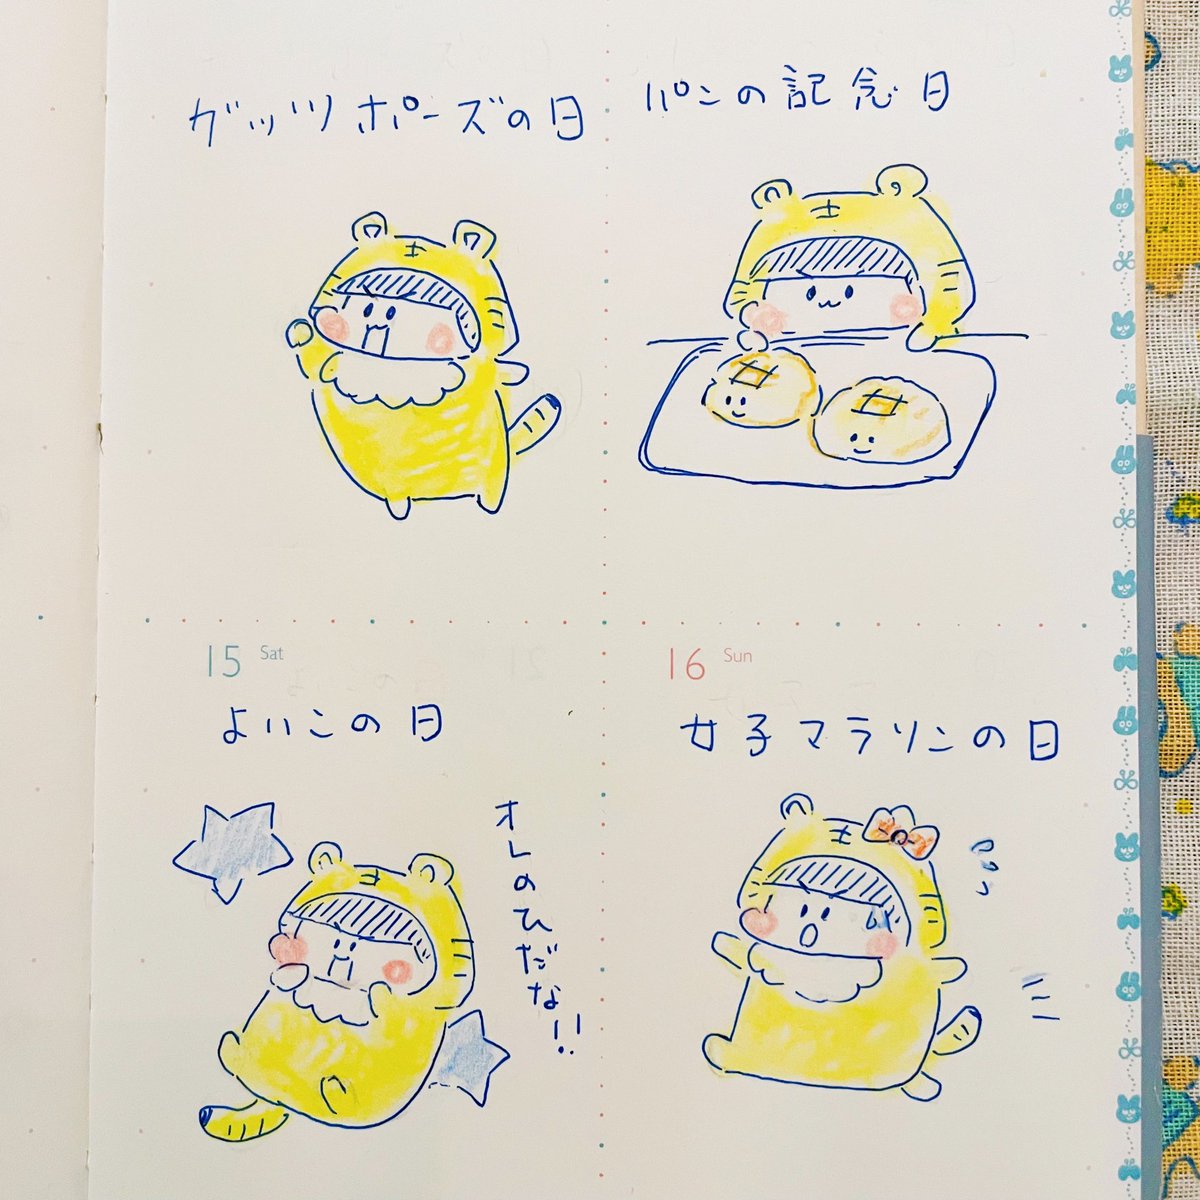 ガッツポーズの日
パンの記念日
15 Sat
よいこの日
オレのひだな!!
16 Sun
女子マラソンの日